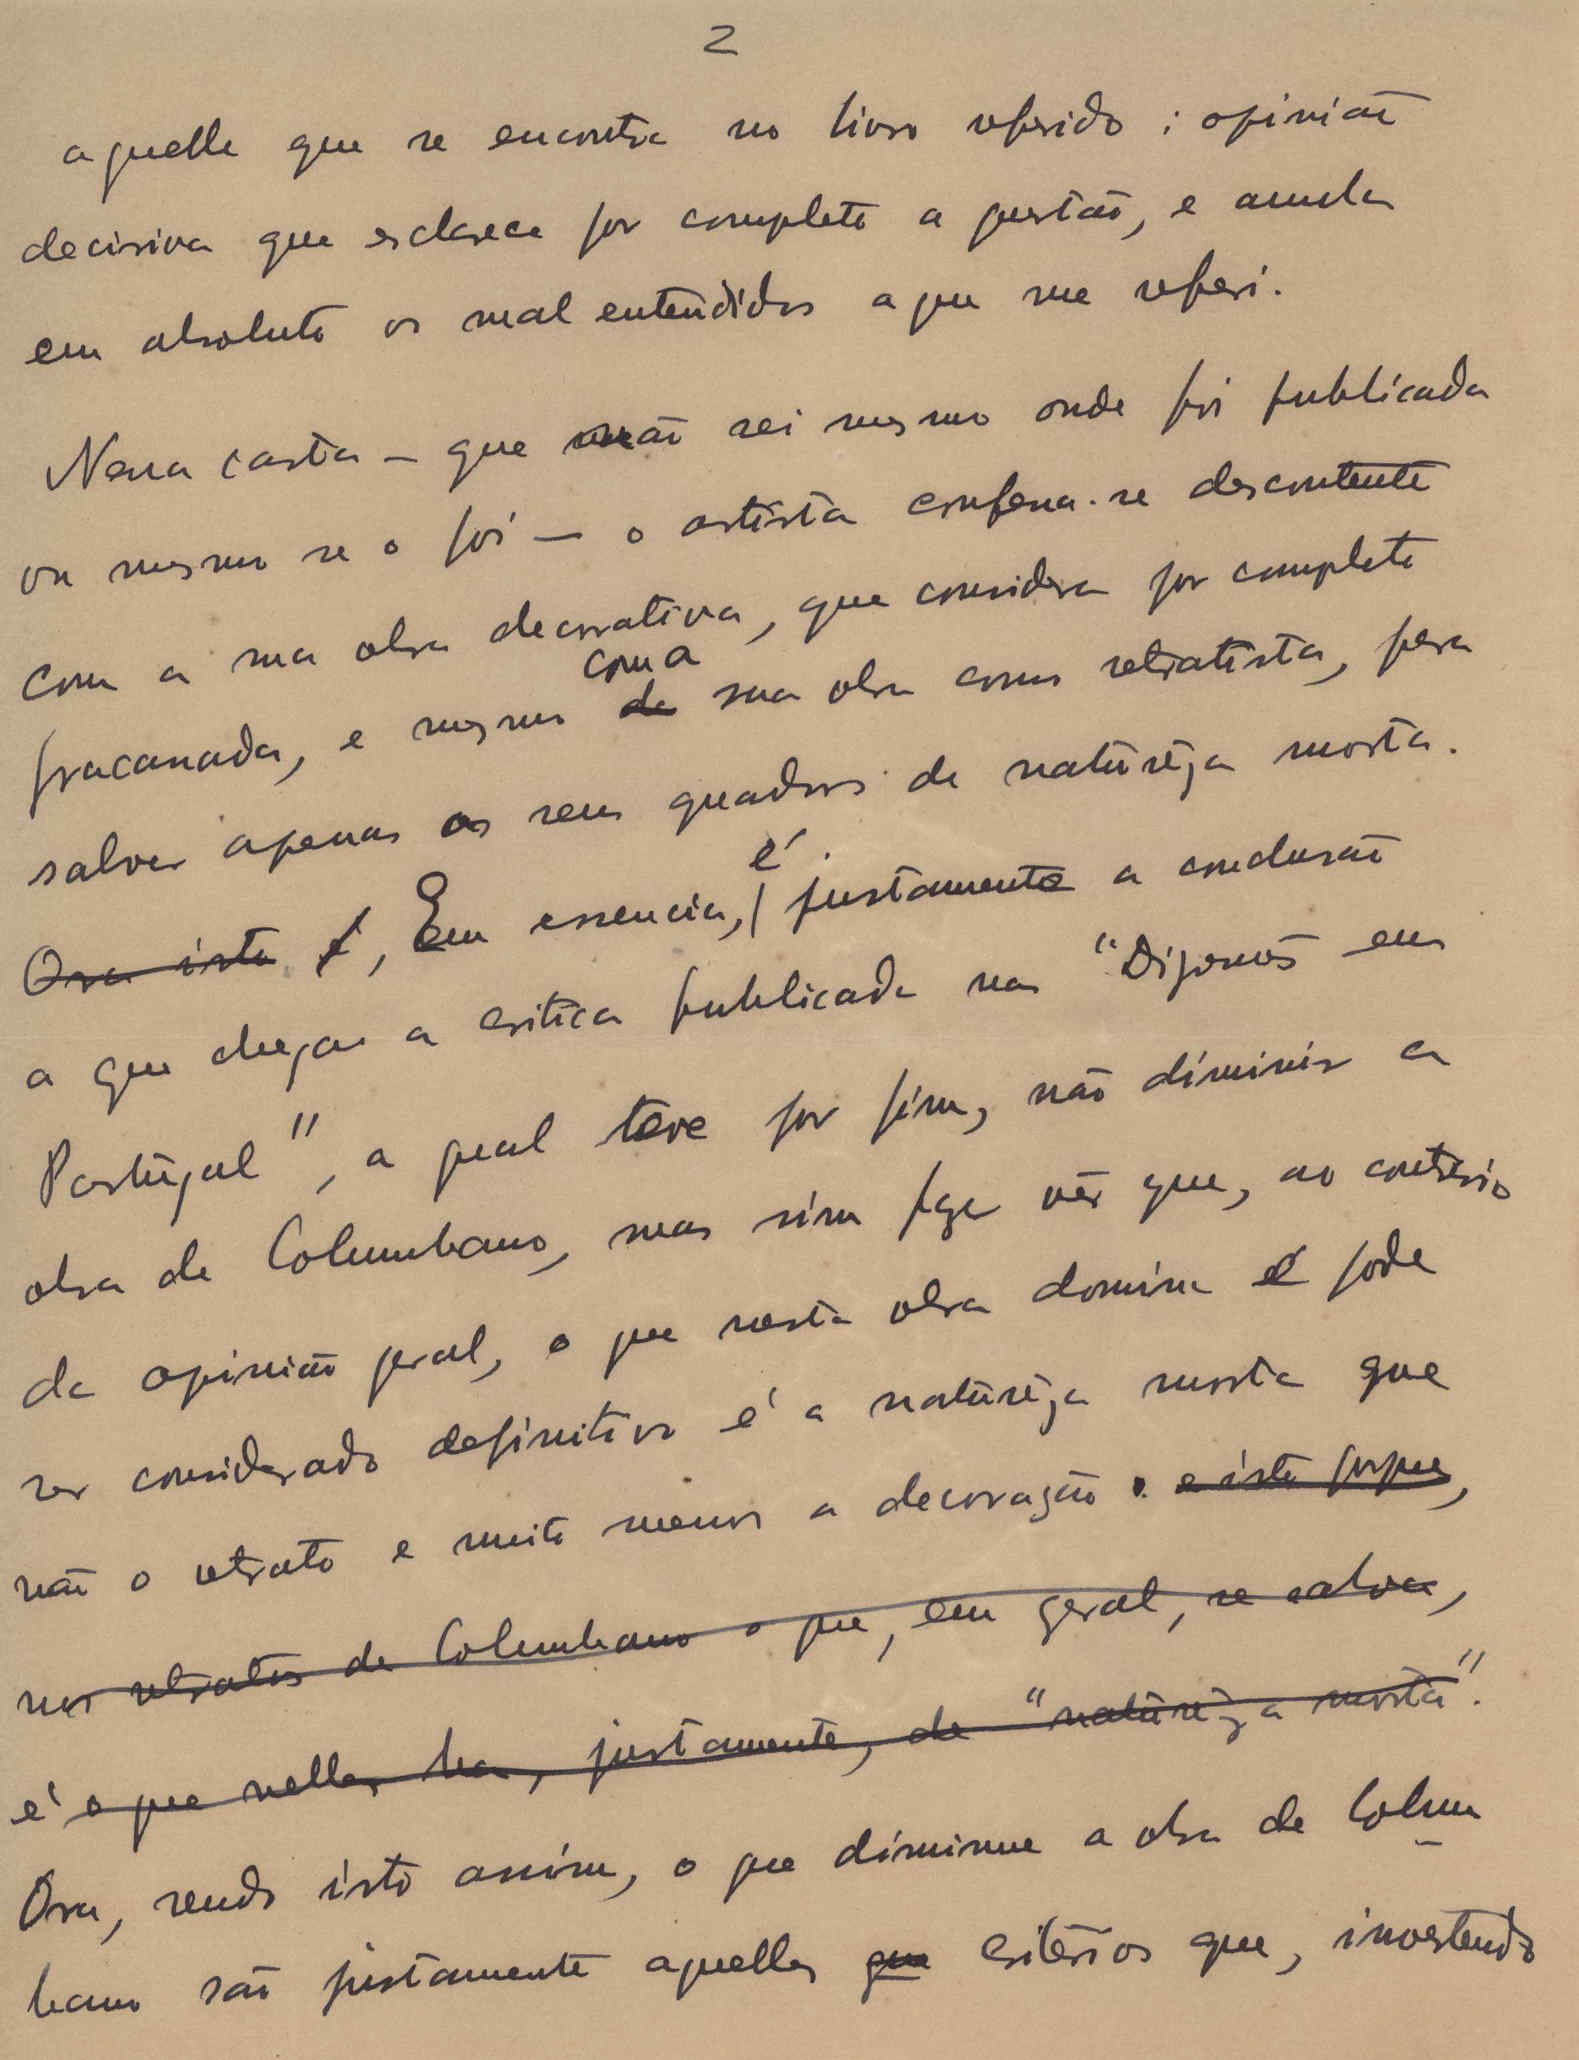 2
aquelle que se encontra no livro referido; opinião
decisiva que esclarece por completo a questão, e anula
em absoluto os mal entendidos a que me referi.
Nessa carta – que não sei mesmo onde foi publicada
ou mesmo se o foi – o artista confessa-se descontente
com a sua obra decorativa, que considera por completo
coma
fracassada, e mesmo de sua obra como retratista, para
salvar apenas os seus quadros de naturêza morta.
é
Ora isto é, Em essencia, justamente a conclusão
a que chegou a critica publicada nas "Digamos em
Portugal", a qual teve por fim, não diminuir a
obra de Columbano, mas sim fazer vêr que, ao contrário
da opinião geral, o que nesta obra domina e pode
ser considerado definitivo é a naturêza morta que
não o retrato e muito menos a decoração. e isto porque,
nos retratos de Columbano o que, em geral, se salva,
é o que nelles ha, justamente, de "naturêza morta".
Ora, sendo isto assim, o que diminue a obra de Colum
bano são justamente aquelles que critérios que, invertendo